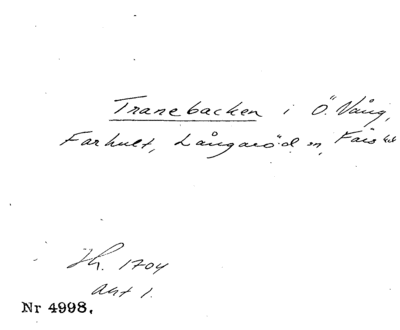 Tranebacken i Ö. Vång,
Farhult, Långaröd sn, Färs hd
Jh. 1704
akt 1.
Nr 4998.